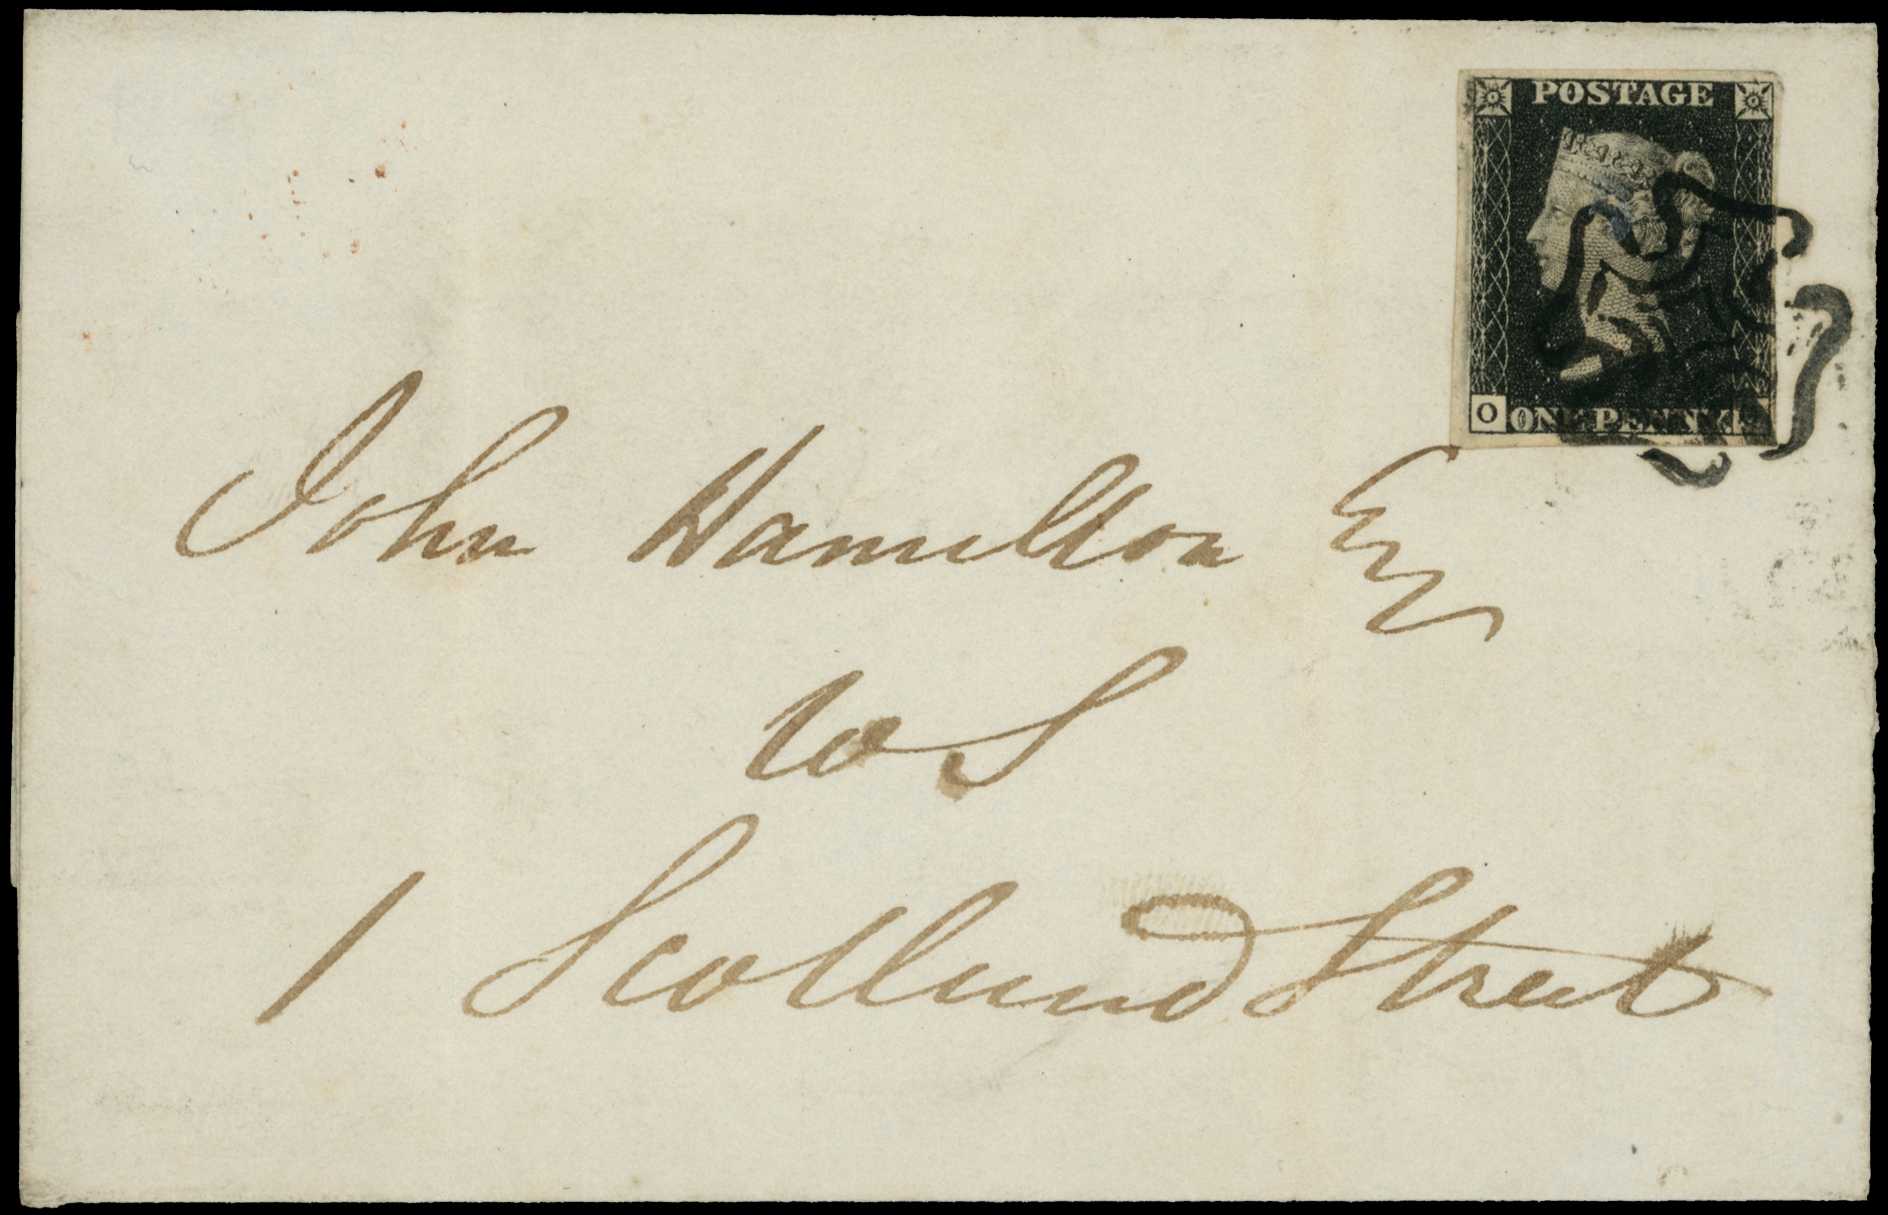 POSTAGE
O ONE PENNY
John Hamilton Esq
WS
1 Scotland Street